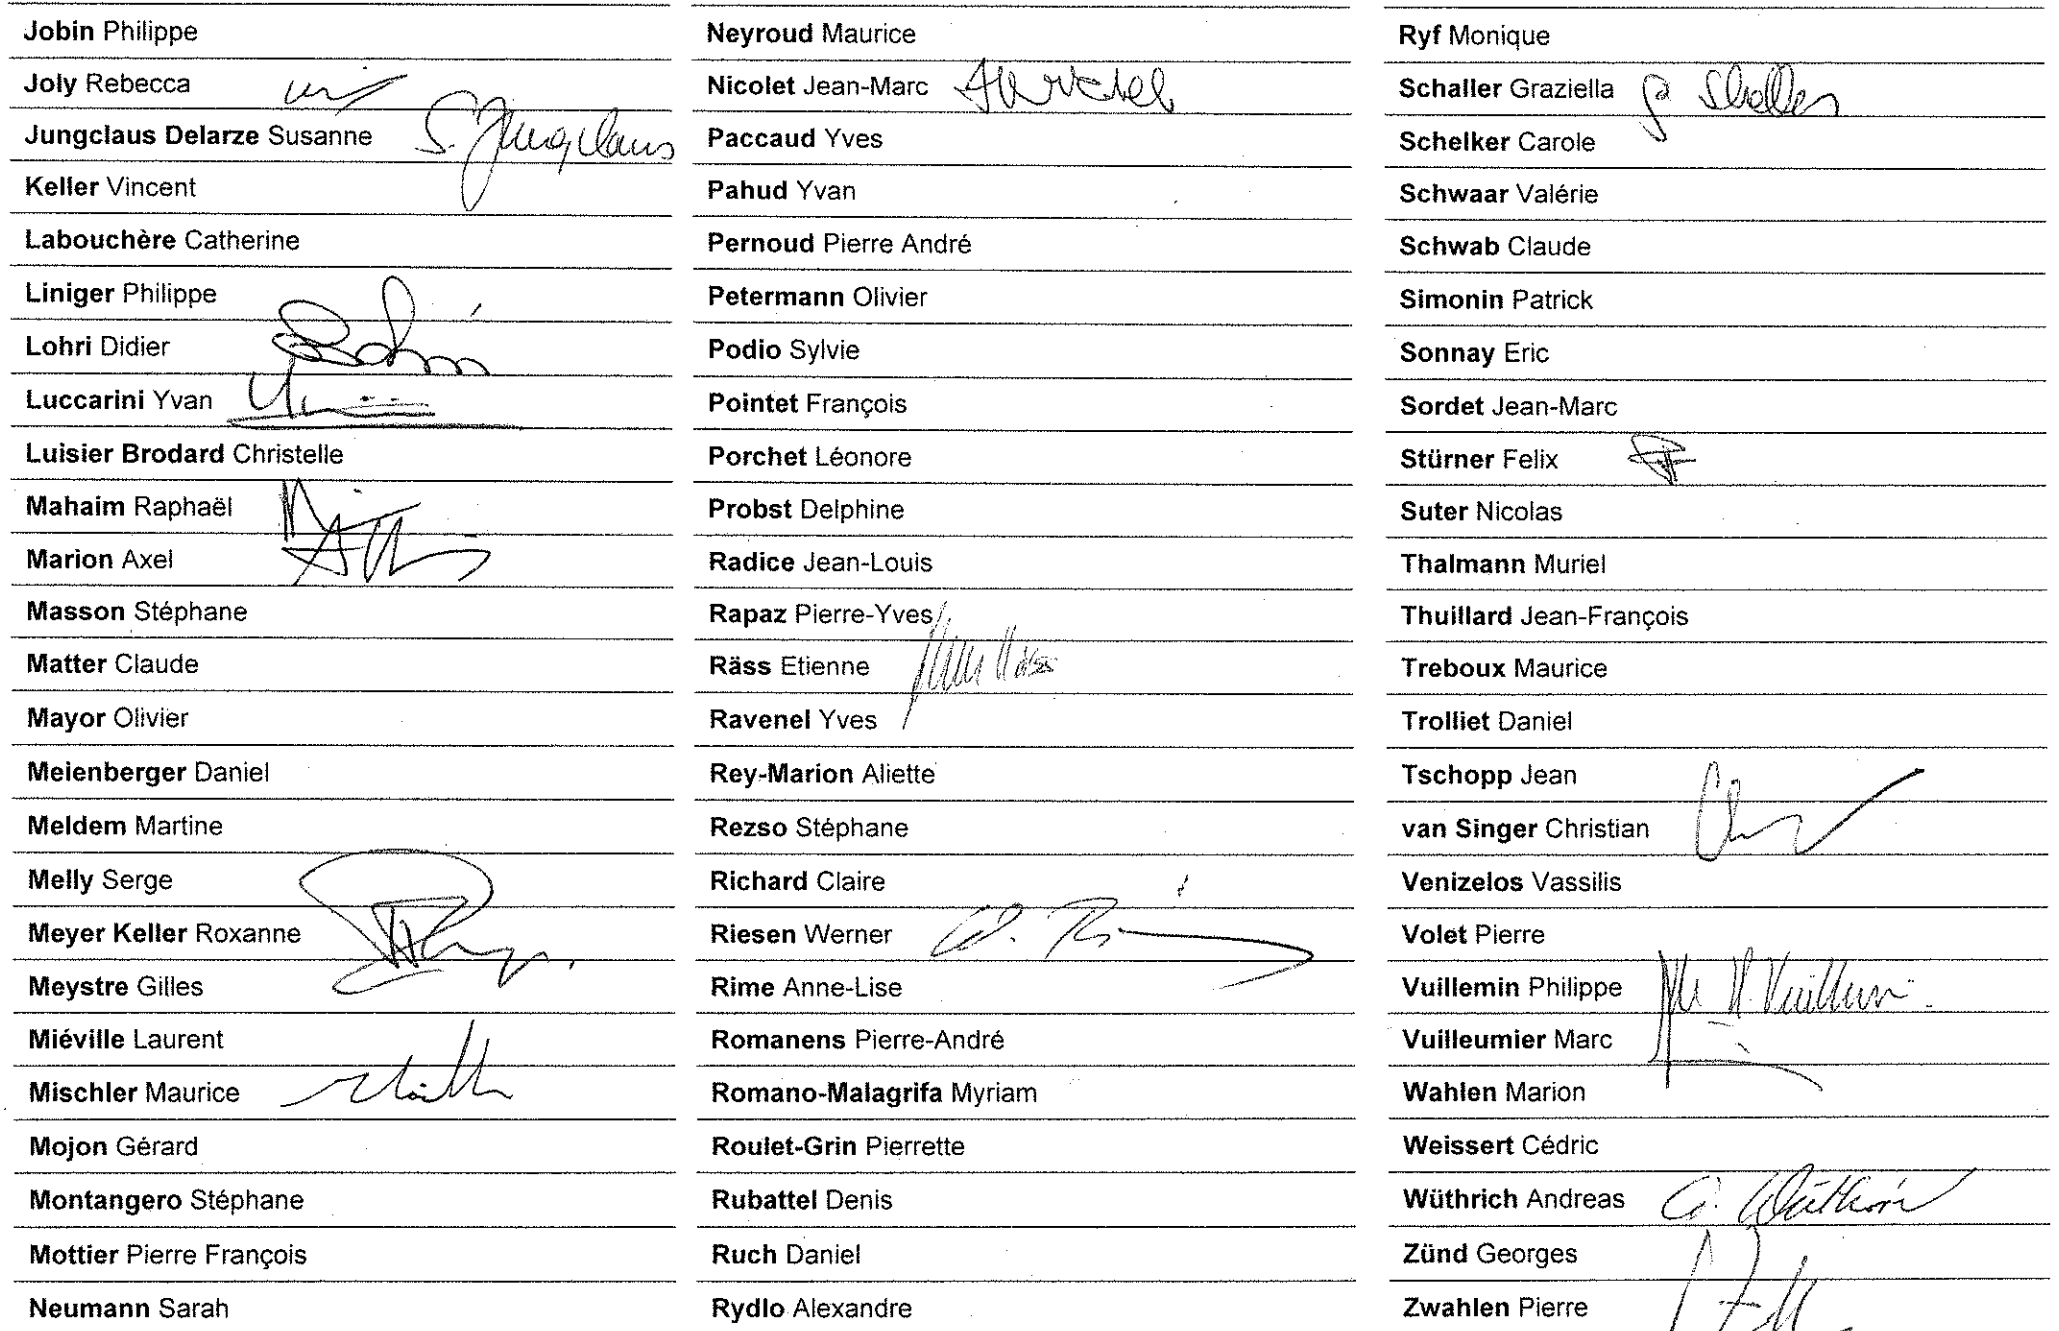 Jobin Philippe
Joly Rebecca
Jungclaus Delarze Susanne S. Jungclaus
Keller Vincent
Labouchère Catherine
Liniger Philippe
Lohri Didier Lohri
Luccarini Yvan
Luisier Brodard Christelle
Mahaim Raphaël
Marion Axel
Masson Stéphane
Matter Claude
Mayor Olivier
Meienberger Daniel
Meldem Martine
Melly Serge
Meyer Keller Roxanne
Meystre Gilles
Miéville Laurent
Mischler Maurice
Mojon Gérard
Montangero Stéphane
Mottier Pierre François
Neumann Sarah
Neyroud Maurice
Nicolet Jean-Marc
Paccaud Yves
Pahud Yvan
Pernoud Pierre André
Petermann Olivier
Podio Sylvie
Pointet François
Porchet Léonore
Probst Delphine
Radice Jean-Louis
Rapaz Pierre-Yves
Räss Etienne Räss
Ravenel Yves
Rey-Marion Aliette
Rezso Stéphane
Richard Claire
Riesen Werner
Rime Anne-Lise
Romanens Pierre-André
Romano-Malagrifa Myriam
Roulet-Grin Pierrette
Rubattel Denis
Ruch Daniel
Rydlo Alexandre
Ryf Monique
Schaller Graziella G Schaller
Schelker Carole
Schwaar Valérie
Schwab Claude
Simonin Patrick
Sonnay Eric
Sordet Jean-Marc
Stürner Felix
Suter Nicolas
Thalmann Muriel
Thuillard Jean-François
Treboux Maurice
Trolliet Daniel
Tschopp Jean
van Singer Christian
Venizelos Vassilis
Volet Pierre
Vuillemin Philippe Vuillemin
Vuilleumier Marc
Wahlen Marion
Weissert Cédric
Wüthrich Andreas A. Wüthrich
Zünd Georges
Zwahlen Pierre